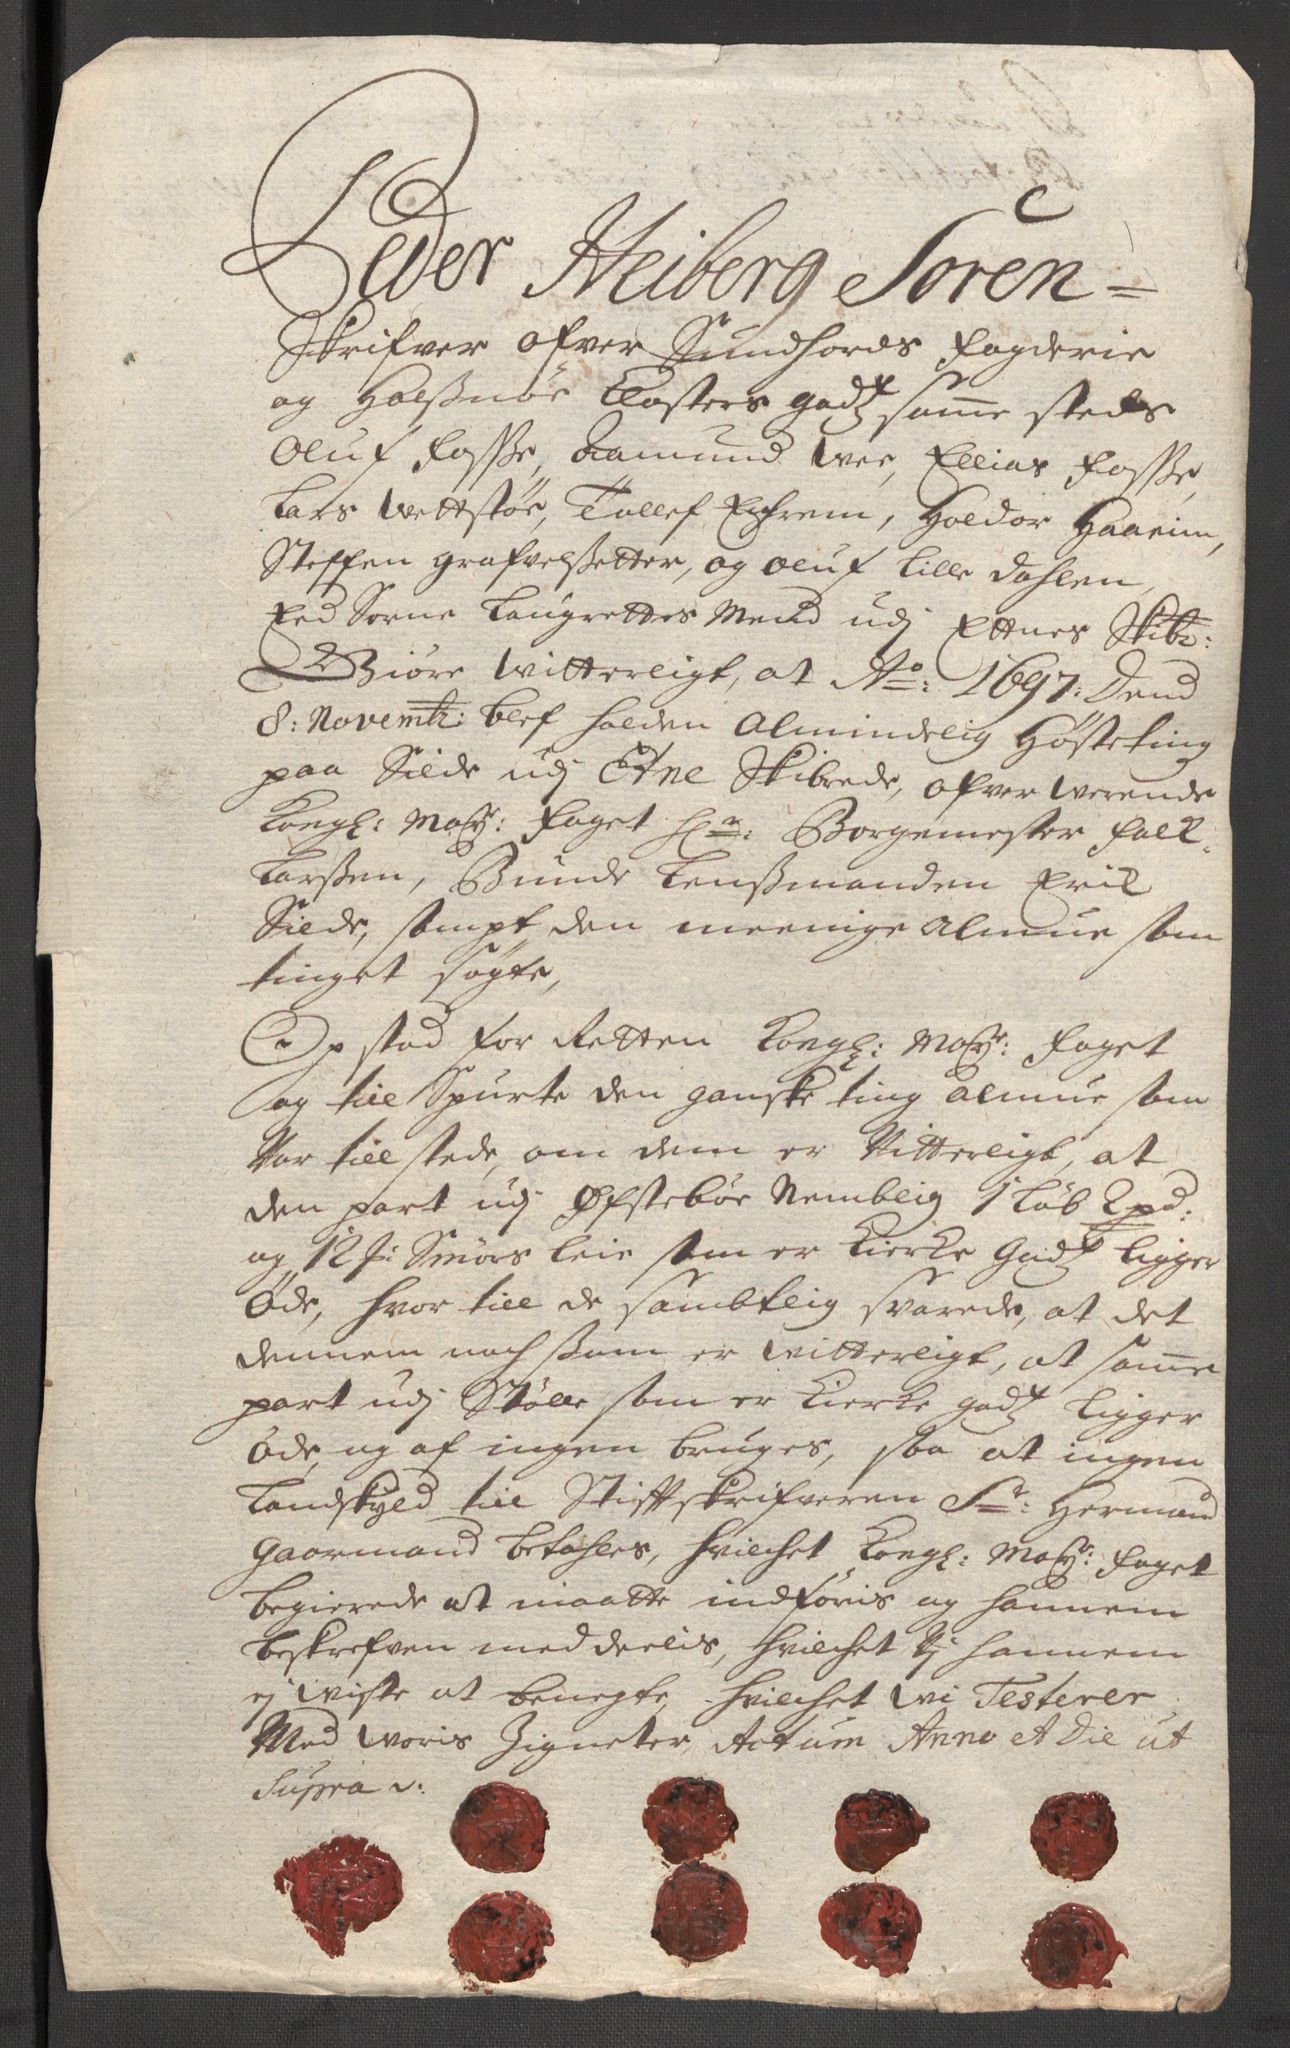 Peder Heiberg Soren=
Skrifver ofver Sundhords fogderie
og Halsnöe Closters godtz samme steds
Oluf Fosse, Aamund Wee, Ellias Fosse,
Lars Wettstöe, Tollef Echrem, Holdor Haaeim,
Steffen Grafvelsetter, og Oluf Lille Dahlen,
Eed Sorne Laugrettes Mend udj Ettnes Skibr:
Giöre Witterligt, at Ao: 1697: Dend
8: Novembr: blef holden Almindelig Hösteting
paa Silde udj Etne Skibrede, ofver werende
Kongl: Mayt: Foget Hr: Borgemester Falk
Larssen, Bunde Lenssmanden Erik
Silde, sampt den meenige Almue som
tinget sögte,
Op stod for Retten Kongl: Mayt: Foget
og till Spurte den ganske ting almue som
Var till stede, om dem er Vitterligt, at
den part udj Øfstebøe Nemblig 1 Løb 2 pd:
og 12 : Smörs leie som er Kierke Godtz ligger
Öde, hvor till de samblig svarede, at det
dennem noch som er witterligt, at samme
part udj Stölle som er Kierke godtz ligger
öde, og af ingen bruges, saa at ingen
Landskyld till Stiftskrifveren Sr: Hermand
Gaarmand betahles, hvilchet Kongl: Mayt: Foget
begierede at maatte indföris og hannem
beskrefven meddeelis, hvilchet Vj hannem
ej wiste at benegte, hvilchet wi Testerer
Med woris Zigneter, Actum Anno et Die ut
Supra